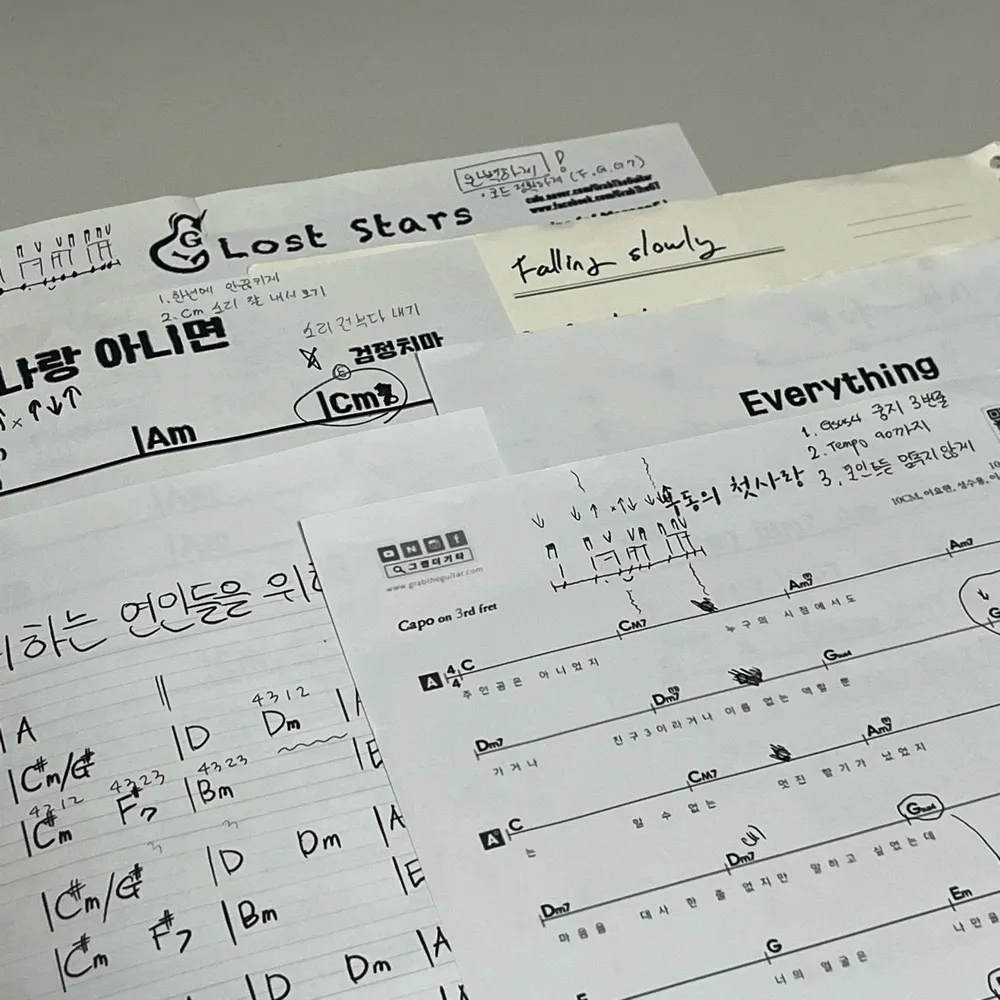 완벽하게!
· 코드 정확하게 (F.G.G7)
cafe.naver.com/GrabTheGuitar
www.facebook.com/GrabTheGT
G Lost Stars
Falling slowly
1. 한번에 안끊기게
2. Cm 소리 잘 내서 보기
소리 전부다 내기
나랑 아니면
검정치마
Am
Cm
Everything
1. Gsus4 중지 3번줄
2. Tempo 90까지
3. 포인트는 멈추지않게
우동의 첫사랑
그랩더기타
www.grabtheguitar.com
Capo on 3rd fret
하는 연인들을 위
A
4 3 1 2
C#m/G# D Dm A
4 3 1 2 4 3 2 3 4 3 2 3
C#m F#7 Bm E
C#m/G# D Dm A
C#m F#7 Bm E
D Dm A
Am7
A 4/4 C CM7 Am7
주인공은 아니었지 누구의 시점에서도
Dm7 Dm7 Gsus4
가거나 친구3이라거나 이름 없는 역할 뿐
A C CM7 Am7
는 알 수 없는 멋진 향기가 났었지
Dm7 Dm7 Gsus4
마음을 대사 한 줄 없지만 말하고 싶었는데
G Em
너의 얼굴은 나만을